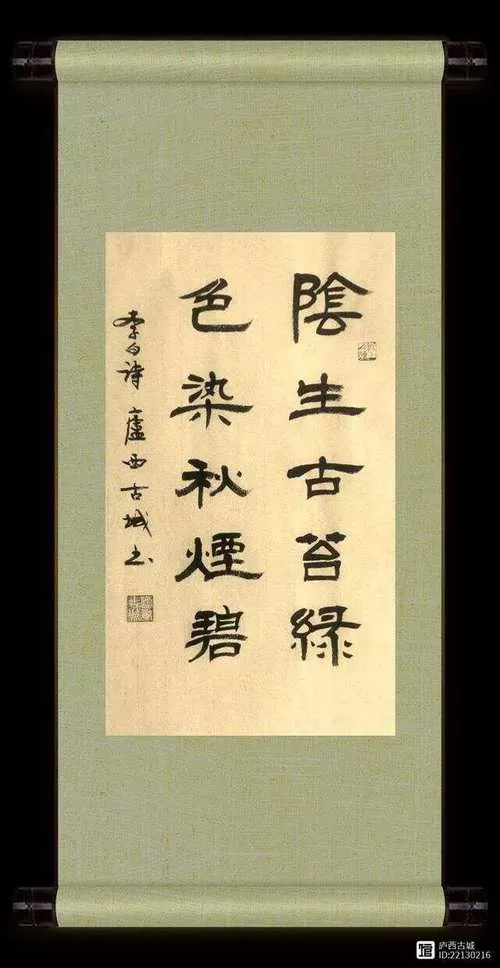 陰生古苔緑
色染秋煙碧
李白诗 廬西古城书
庐西古城
ID:22130216